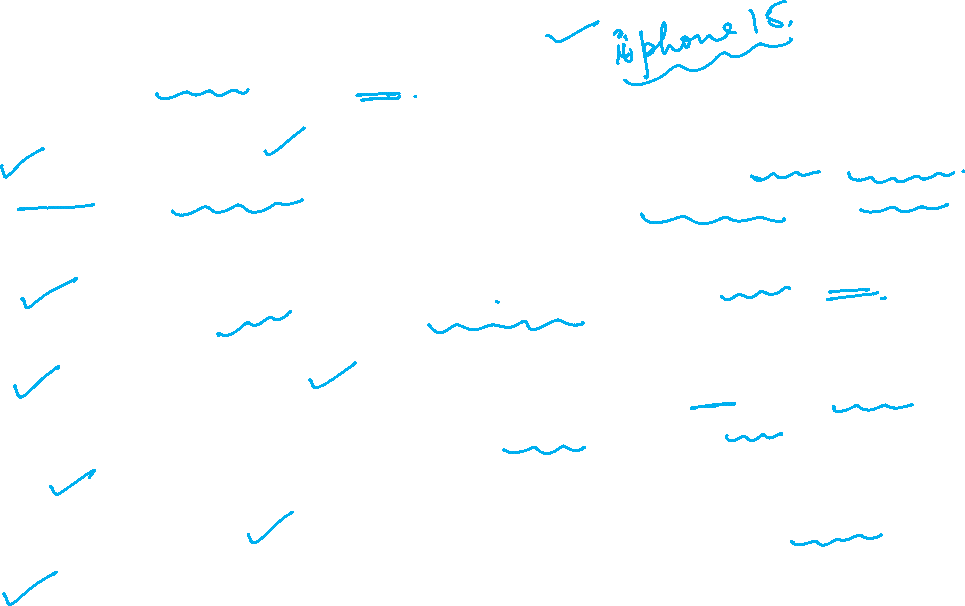 iphone 15.